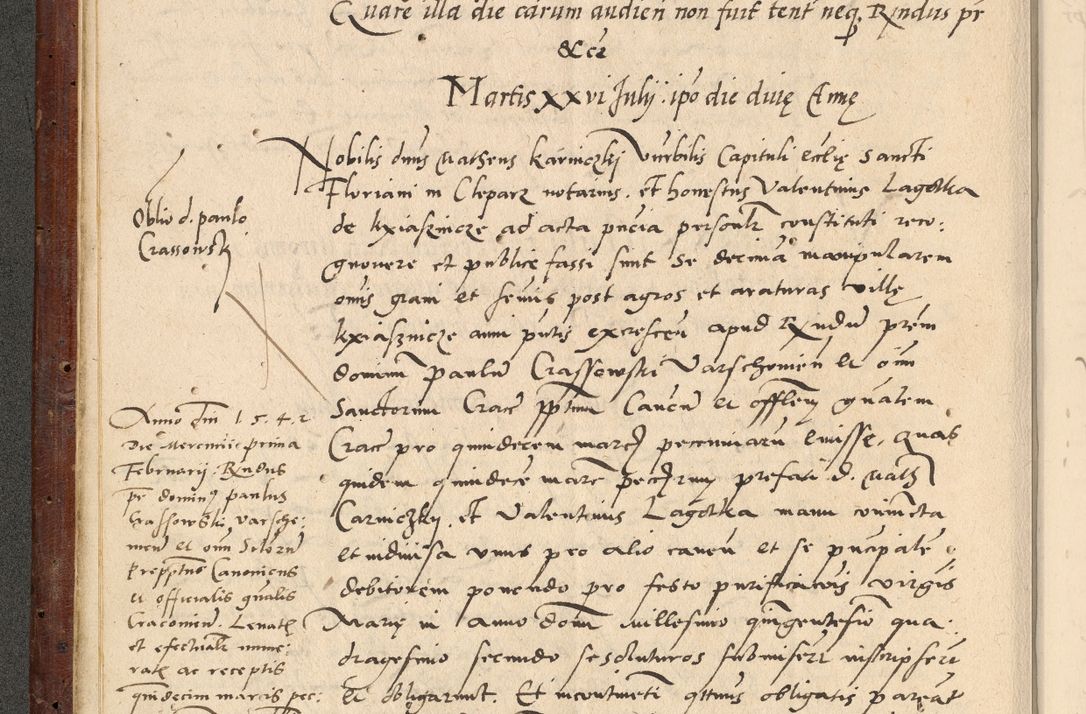 Quare illa die carum audien non fuit tent neq. Rndus pr
&cr
Martis xxvi Julij. ipo die diuę Annę
Nobilis dnus Mathens Karniczkj Vnrbilis Capituli ecclię Sancti
Floriani in Cleparz notarius. et honestus Valentinus Lagotka
de kxiasznicze ad acta pncia personlr constituti reco:
gnouere et publice fassi sunt se decimā manipularem
omis grani et semis post agros et araturas villę
kxiasznicze anni pntis excrescen apud Rndum prem
dominum Paulum Crassowski Varschouien et oim
Sanctorum Crac pptum Cancum et offlem gnalem
Crac pro quindecem marcis pecuniarum emisse. Quas
quidem quindece marc pecrum prefati d. Math
Carniczkj. et Valentinus Lagotka manu coniuncta
et indiuisa unus pro alio cauen et se pncipale
debitorem ponendo pro festo purificacionis virgis
Marię in anno domi millesimo quingentesimo qua:
dragesimo secundo se soluturos submiserunt inscripserunt
et obligarunt. Et incontinenti ottimis obligatis pareat
Oblio d. paulo
Crassowskj
Anno dni 1542
Die Mercurii prima
Februarij. Rndus
pr dominus paulus
Crassowskj varscho:
uien et oim Sctorum
prepptus Canonicus
et officialis gnalis
Cracouien. Leuatis
et efectualr nume:
ratis ac receptis
quidecim marcis pec: